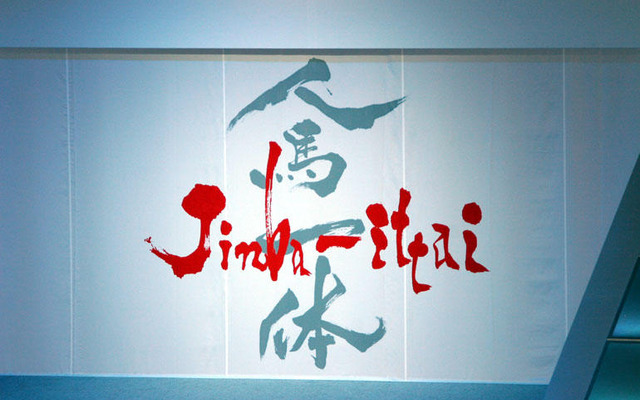 人馬一体
Jinba-ittai